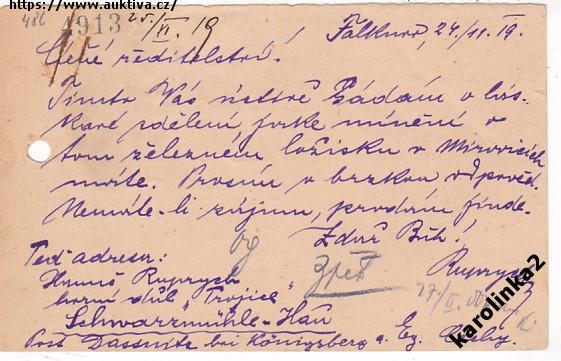 https://www.auktiva.cz/
486 4913 25/XI. 19 Falknov, 24./11. 19.
Ctěné ředitelství!
Tímto Vás uctivě žádám o lás-
kavé sdělení jaké mínění o
tom železném ložisku v Mirovicích
máte. Prosím o brzkou odpověď.
Nemáte-li zájmu, prodám jinde.
Zdař Bůh!
Teď adresa:
zpět
Hanuš Ruprych
Ruprych
horní důl "Trojice"
27/XI.
Schwarzmühle-Hau
Post Dassnitz bei Königsberg a. Eg. Čechy.
karolinka2